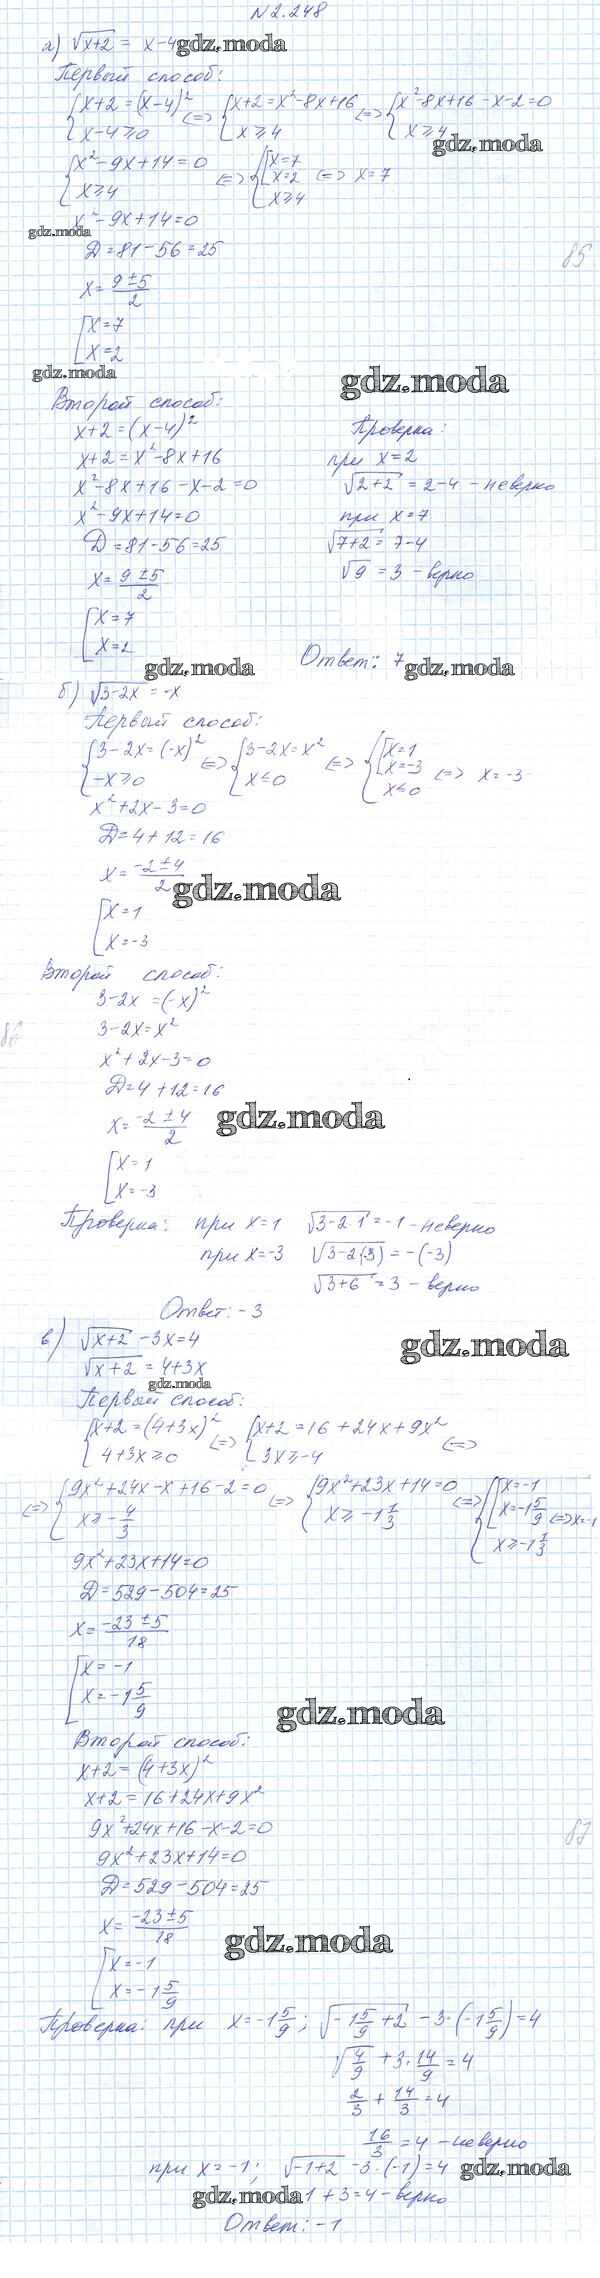 N 2.248
а) √x+2 = x-4 gdz.moda
Первый способ:
{x+2=(x-4)² x-4≥0 <=> {x+2=x²-8x+16 x≥4 <=> {x²-8x+16-x-2=0 x≥4
gdz.moda
{x²-9x+14=0 x≥4 <=> {[x=7 x=2 x≥4 <=> x=7
x²-9x+14=0
gdz.moda
D=81-56=25
85
x=(9±5)/2
[x=7
x=2
gdz.moda
gdz.moda
Второй способ:
x+2=(x-4)²
x+2=x²-8x+16
x²-8x+16-x-2=0
x²-9x+14=0
D=81-56=25
x=(9±5)/2
[x=7
x=2
gdz.moda
Проверка:
при x=2
√2+2 = 2-4 - неверно
при x=7
√7+2 = 7-4
√9 = 3 - верно
Ответ: 7 gdz.moda
б) √3-2x = -x
Первый способ:
{3-2x=(-x)² -x≥0 <=> {3-2x=x² x≤0 <=> {[x=1 x=-3 x≤0 <=> x=-3
x²+2x-3=0
D=4+12=16
x=(-2±4)/2
gdz.moda
[x=1
x=-3
Второй способ:
3-2x=(-x)²
3-2x=x²
86
x²+2x-3=0
D=4+12=16
x=(-2±4)/2
gdz.moda
[x=1
x=-3
Проверка: при x=1 √3-2·1 = -1 - неверно
при x=-3 √3-2(-3) = -(-3)
√3+6 = 3 - верно
Ответ: -3
в) √x+2 -3x=4
gdz.moda
√x+2 = 4+3x
gdz.moda
Первый способ:
{x+2=(4+3x)² 4+3x≥0 <=> {x+2=16+24x+9x² 3x≥-4 <=>
<=> {9x²+24x-x+16-2=0 x≥-4/3 <=> {9x²+23x+14=0 x≥-1 1/3 <=> {[x=-1 x=-1 5/9 x≥-1 1/3 <=> x=-1
9x²+23x+14=0
D=529-504=25
x=(-23±5)/18
[x=-1
x=-1 5/9
gdz.moda
Второй способ:
x+2=(4+3x)²
x+2=16+24x+9x²
9x²+24x+16-x-2=0
87
9x²+23x+14=0
D=529-504=25
x=(-23±5)/18
gdz.moda
[x=-1
x=-1 5/9
Проверка: при x=-1 5/9; √-1 5/9+2 -3·(-1 5/9)=4
√4/9 +3·14/9=4
2/3+14/3=4
16/3=4 - неверно
при x=-1; √-1+2 -3·(-1)=4 gdz.moda
gdz.moda 1+3=4 - верно
Ответ: -1